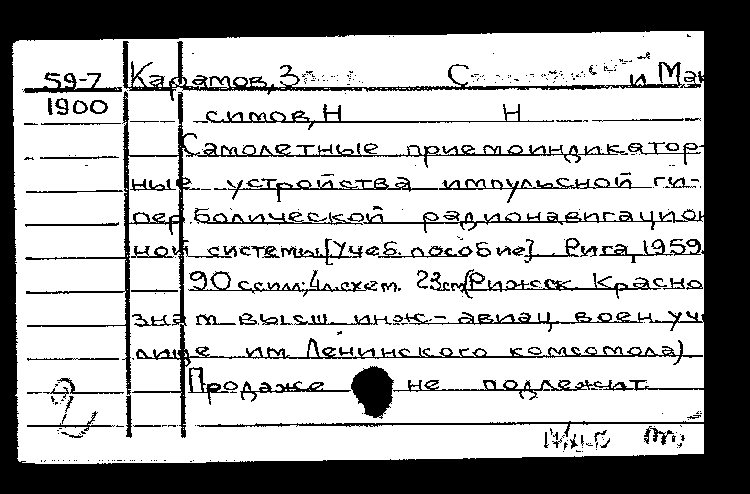 59-7 Карамов, З С и Мак
1900 симов, Н Н
Самолетные приемоиндикатор-
ные устройства импульсной ги-
перболической радионавигацион
ной системы. [Учеб. пособие]. Рига, 1959.
90 с. с илл; 4 л. схем. 23 см (Рижск. Красно
знам высш. инж-авиац. воен. учи
лище им. Ленинского комсомола).
Продаже не подлежит.
2